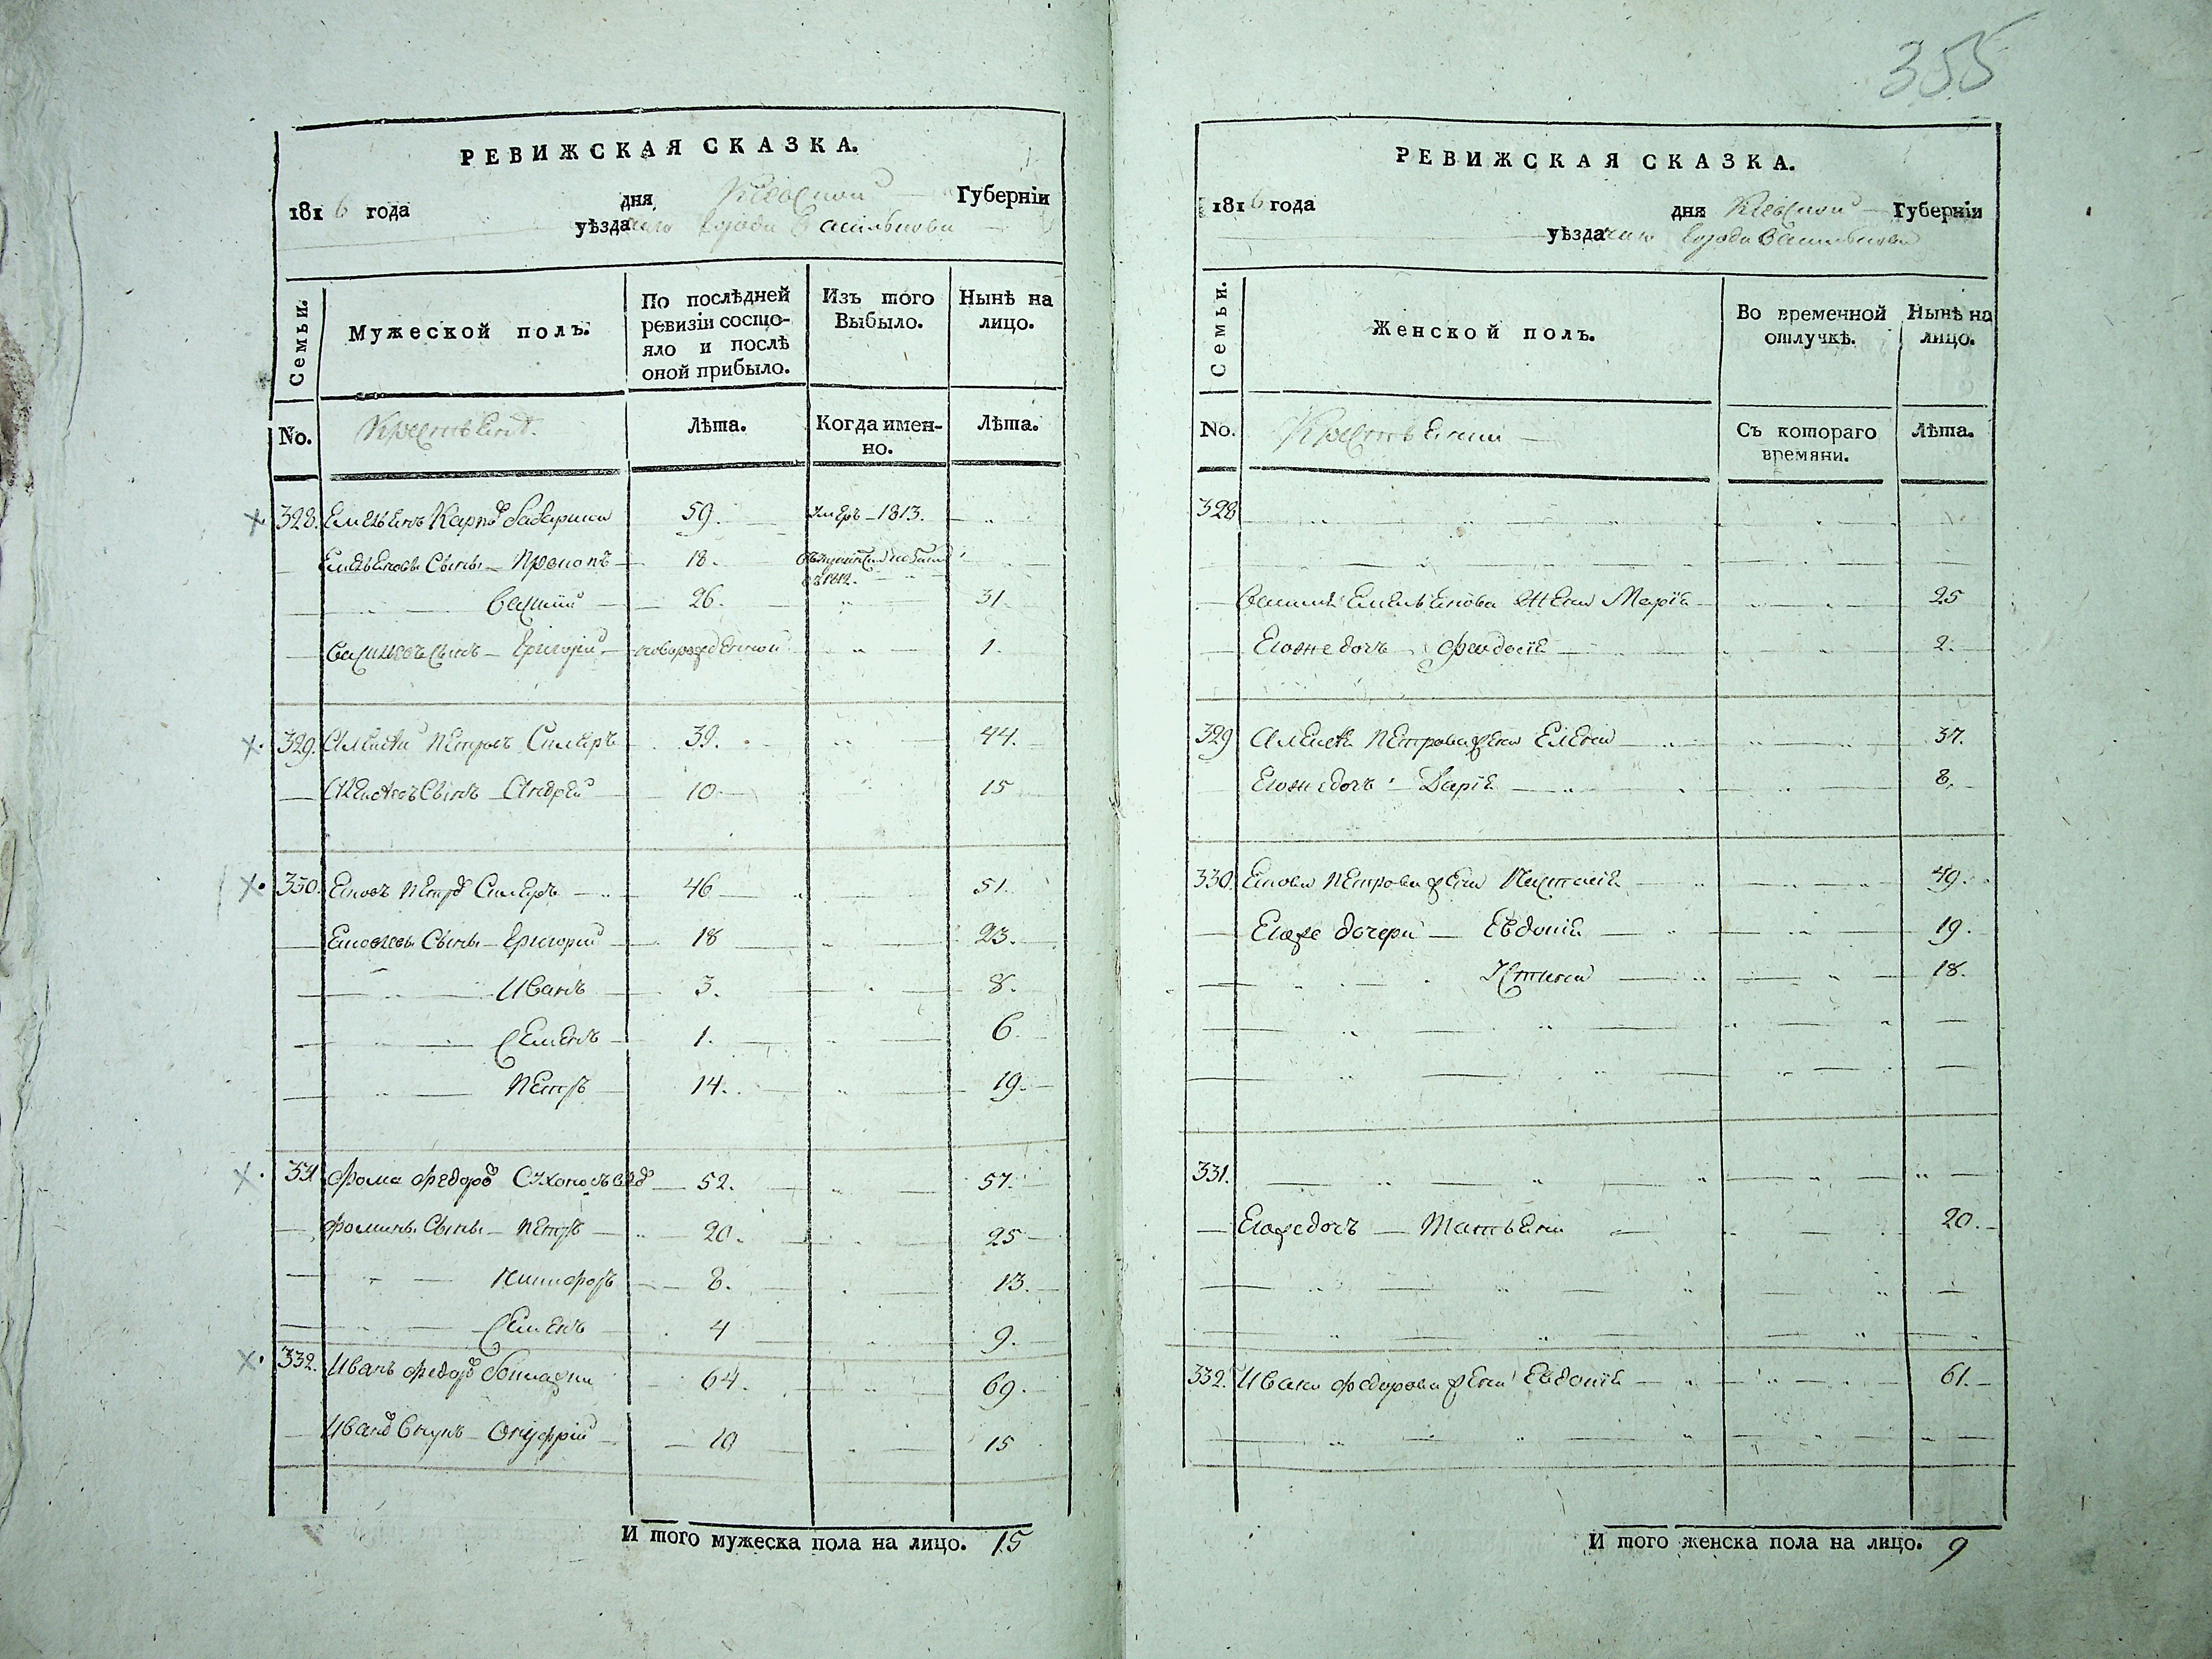 355
РЕВИЖСКАЯ СКАЗКА.
1816 года дня Кіевской Губерніи
уѣзда города Василькова
Семьи.
Мужеской полъ.
По послѣдней ревизіи состо-
яло и послѣ оной прибыло.
Изъ того Выбыло.
Нынѣ на лицо.
No.
Крестьянъ.
Лѣта.
Когда имен-
но.
Лѣта.
328. Емельянъ Карповъ 59. умеръ 1813.
Емельяновы Сыны Прокопъ 18. 1812.
Василій 26. 31.
Васильевъ сынъ Григорій новорожденной 1.
329. Алексѣй Петровъ 39. 44.
Алексѣевъ Сынъ Андрей 10 15
330. Яковъ Петровъ 46 51.
Яковлевы Сыны Григорій 18 23.
Иванъ 3. 8.
Семенъ 1. 6
Петръ 14. 19.
331 Фома Федоровъ 52. 57.
Фомины Сыны Петръ 20. 25
Никифоръ 8. 13.
Семенъ 4 9.
332. Иванъ Федоровъ 64. 69.
Ивановъ Внукъ Онуфрій 10 15
И того мужеска пола на лицо. 15
РЕВИЖСКАЯ СКАЗКА.
1816 года дня Кіевской Губерніи
уѣзда города Василькова
Семьи.
Женской полъ.
Во временной отлучкѣ.
Нынѣ на лицо.
No.
Крестьянки
Съ котораго времяни.
Лѣта.
328
Василія Емельянова жена Марія 25
Егоже дочь Феодосія 2.
329 Алексѣя Петрова жена Елена 37.
Егоже дочь Дарія 8.
330. Якова Петрова жена Настасія 49.
Егоже дочери Евдокія 19.
Устинія 18.
331.
Егоже дочь Татьяна 20.
332. Ивана Федорова жена Евдокія 61.
И того женска пола на лицо. 9